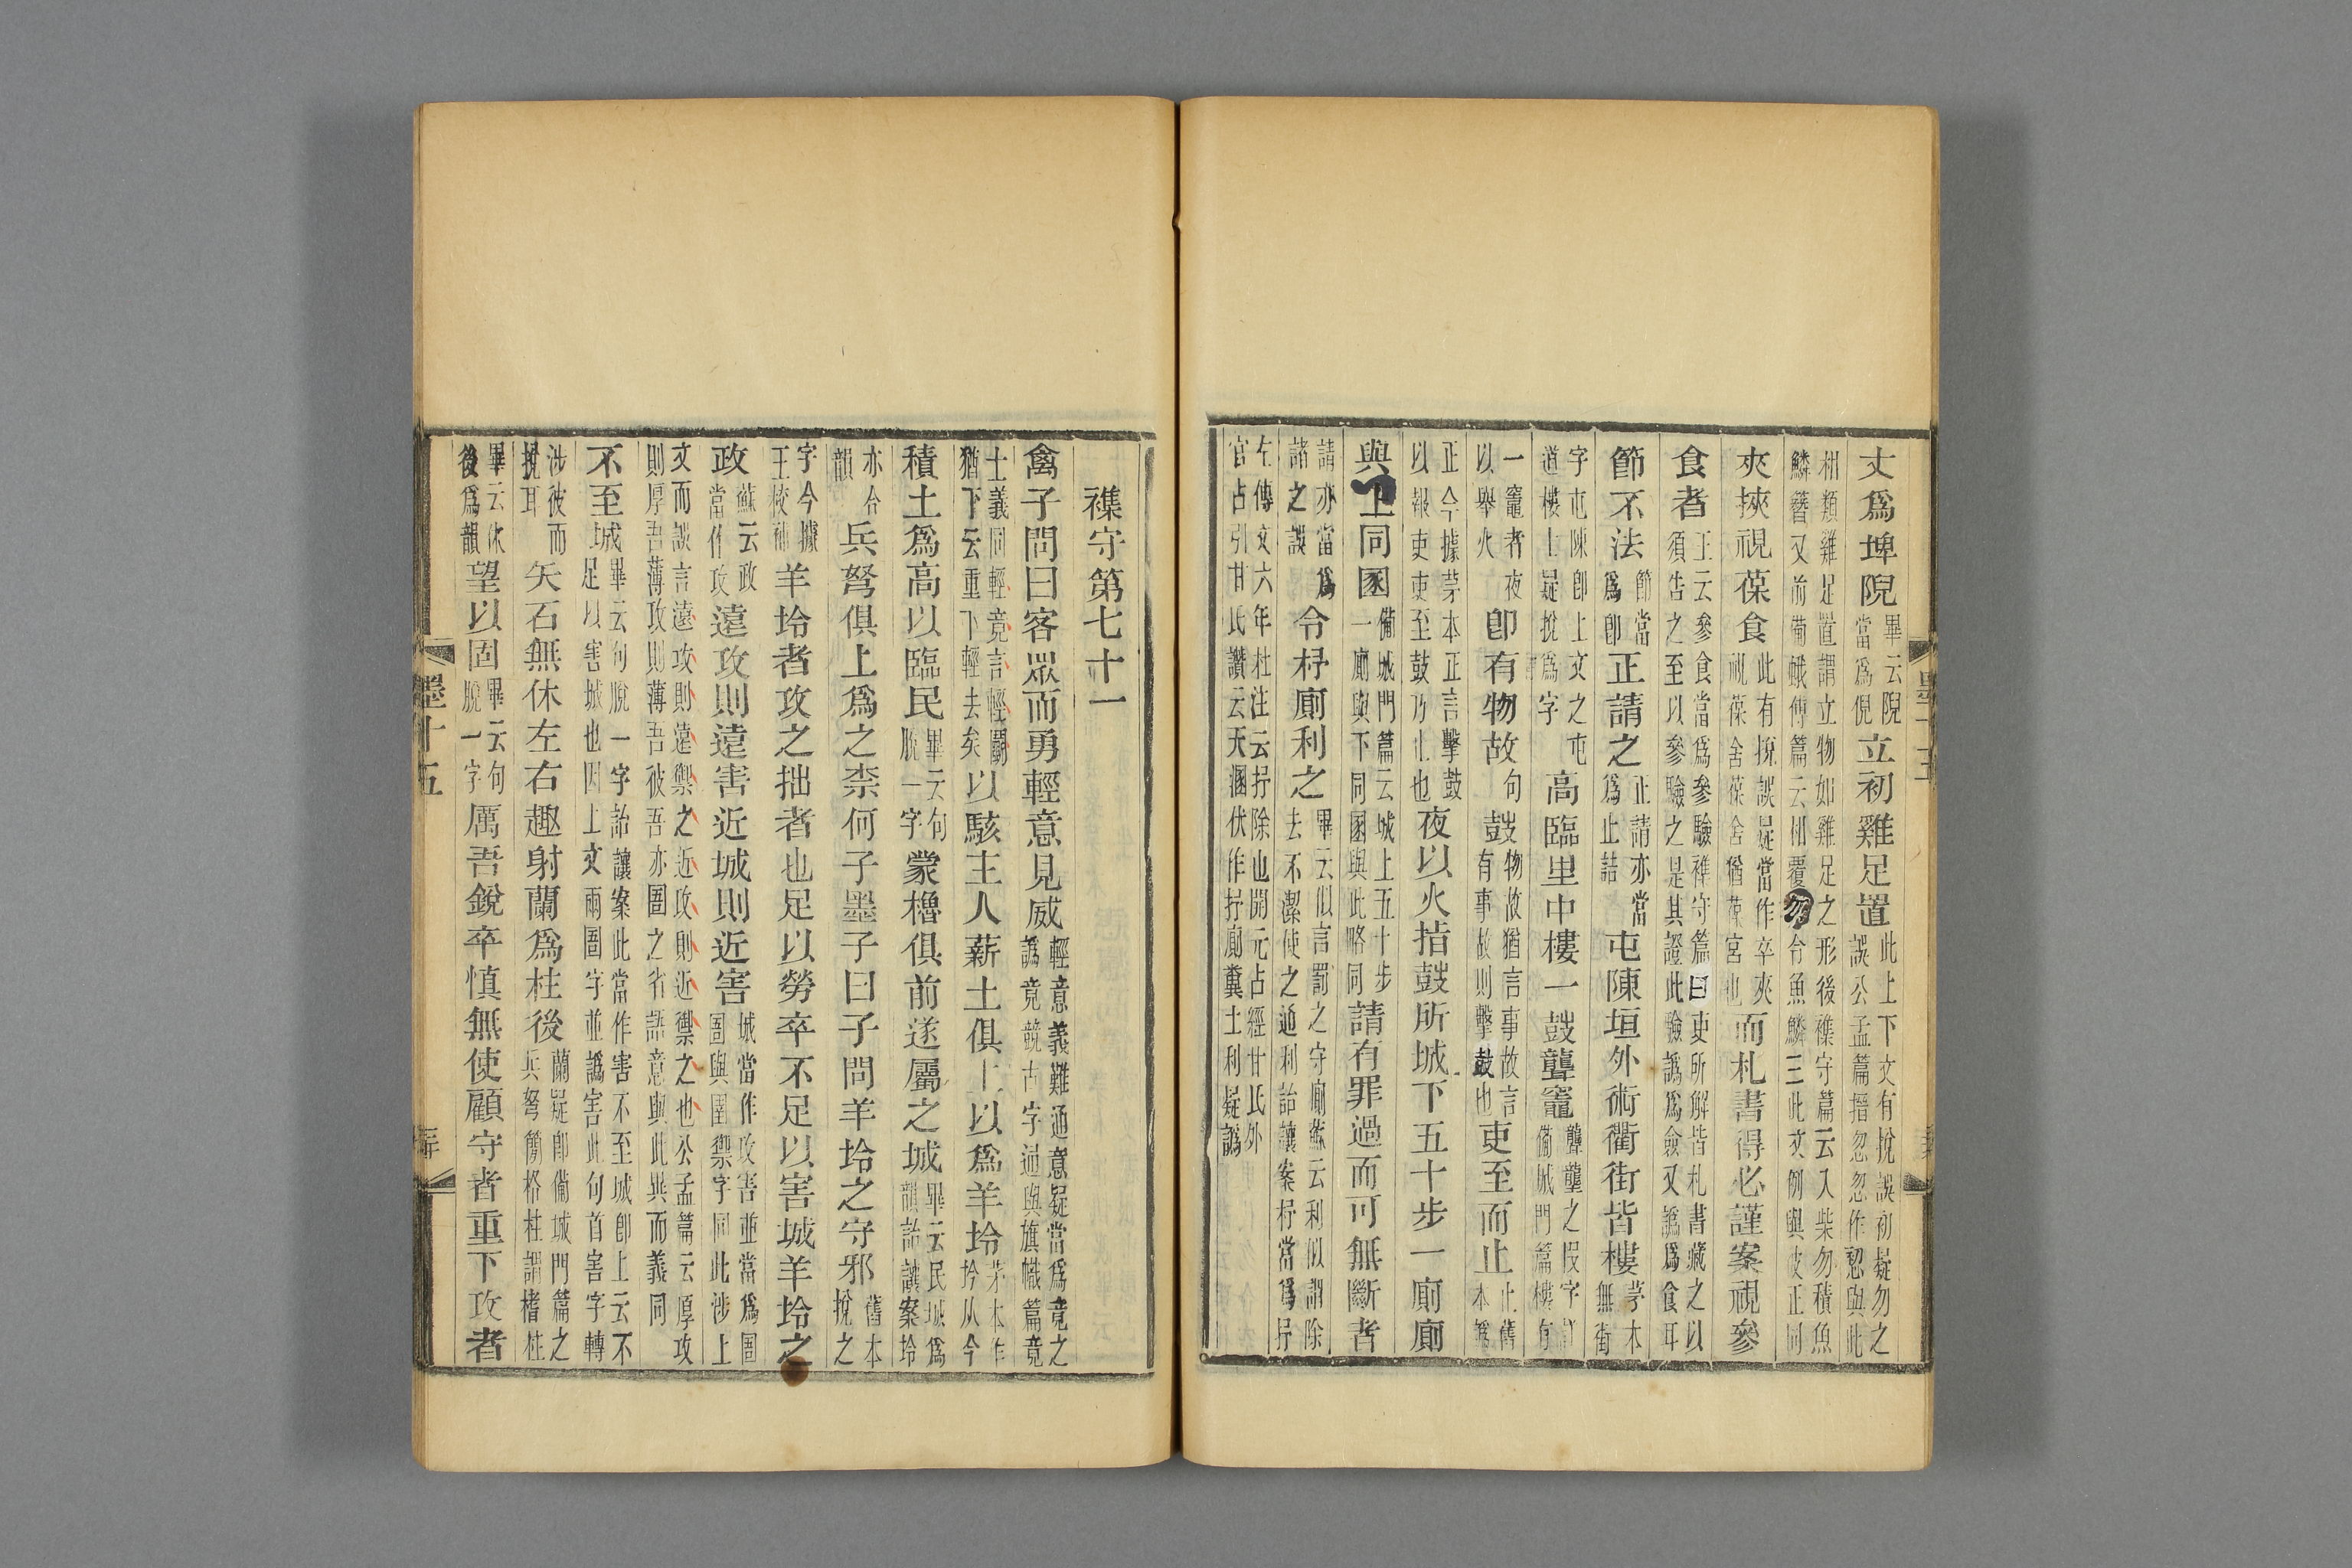 丈爲埤隉畢云隉當爲倪立初雞足置此上下文有挩誤初疑勿之誤公孟篇搢忽忽作㫚與此
相類雞足置謂立物如雞足之形後襍守篇云入柴勿積魚鱗簪又前備蛾傅篇云相覆勿令魚鱗三此文例與彼正同
夾挾視葆食此有挩誤疑當作卒夾視葆舍葆舍猶葆宮也而札書得必謹案視參
食者王云參食當爲參驗襍守篇曰吏所解皆札書藏之以須告之至以參驗之是其證此驗譌爲僉又譌爲食耳
節不法節當爲卽正請之正請亦當爲止詰屯陳垣外術衢街皆樓茅本無街
字屯陳卽上文之屯道樓上疑挩爲字高臨里中樓一鼓聾竈聾壟之叚字詳備城門篇樓有
一竈者夜以舉火卽有物故句鼓物故猶言事故言有事故則擊鼓也吏至而止止舊本譌
正今據茅本正言擊鼓以報吏吏至鼓乃止也夜以火指鼓所城下五十步一廁廁
與上同圂備城門篇云城上五十步一廁與下同圂與此略同請有罪過而可無斷者
請亦當爲諸之誤令杼廁利之畢云似言罰之守廁蘇云利似謂除去不潔使之通利詒讓案杼當爲抒
左傳文六年杜注云抒除也開元占經甘氏外官占引甘氏讚云天溷伏作抒廁糞土利疑譌
襍守第七十一
禽子問曰客眾而勇輕意見威輕意義難通意疑當爲竟之譌竟競古字通與旗幟篇竟
士義同輕竟言輕鬭猶下云重下輕去矣以駭主人薪土俱上以爲羊坽茅本作坅从今
積土爲高以臨民畢云句脫一字蒙櫓俱前遂屬之城畢云民城爲韻詒讓案坽
亦合韻兵弩俱上爲之柰何子墨子曰子問羊坽之守邪舊本挩之
字今據王校補羊坽者攻之拙者也足以勞卒不足以害城羊坽之
政蘇云政當作攻遠攻則遠害近城則近害城當作攻害並當爲圄圄與圉禦字同此涉上
文而誤言遠攻則遠禦之近攻則近禦之也公孟篇云厚攻則厚吾薄攻則薄吾彼吾亦圄之省語意與此異而義同
不至城畢云句脫一字詒讓案此當作害不至城卽上云不足以害城也因上文兩圄字並譌害此句首害字轉
涉彼而挩耳矢石無休左右趣射蘭爲柱後蘭疑卽備城門篇之兵弩簡格柱謂榰柱
畢云休後爲韻望以固畢云句脫一字厲吾銳卒慎無使顧守者重下攻者
墨十五